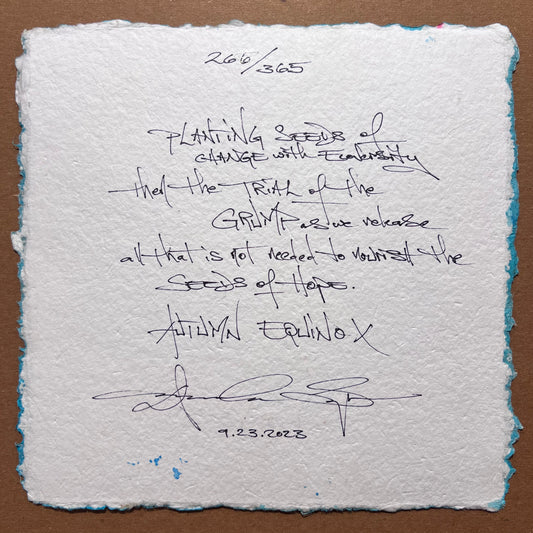 266/365
PLANTING SEEDS of
CHANGE with Ecoversity
then the TRIAL of the
GRUMP as we release
all that is not needed to nourish the
SEEDS of HOPE.
AUTUMN EQUINOX
9.23.2023